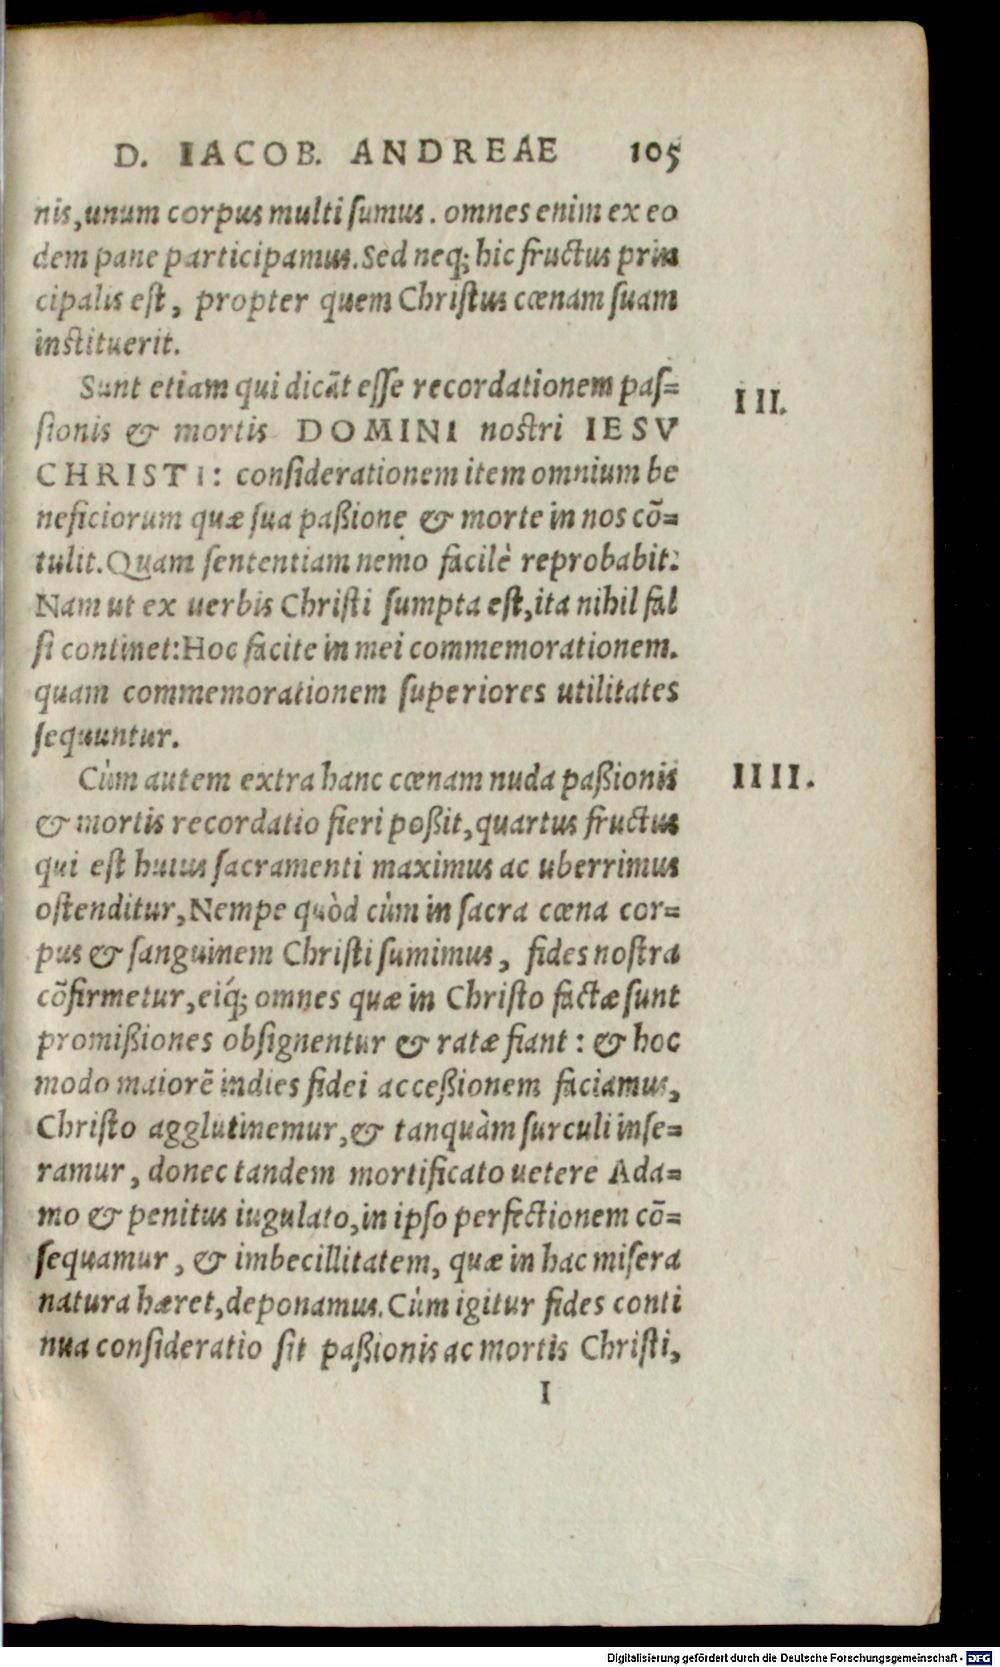 D. IACOB. ANDREAE 105
nis, unum corpus multi ſumus. omnes enim ex eo
dem pane participamus. Sed neq; hic fructus prin
cipalis eſt, propter quem Chriſtus cœnam ſuam
inſtituerit.
Sunt etiam qui dicāt eſſe recordationem paſ=
ſionis & mortis DOMINI noſtri IESV
CHRISTI: conſiderationem item omnium be
neficiorum quæ ſua paßione & morte in nos cō=
tulit. Quam ſententiam nemo facilè reprobabit:
Nam ut ex uerbis Chriſti ſumpta eſt, ita nihil fal
ſi continet: Hoc facite in mei commemorationem.
quam commemorationem ſuperiores utilitates
ſequuntur.
III.
Cùm autem extra hanc cœnam nuda paßionis
& mortis recordatio fieri poßit, quartus fructus
qui eſt huius ſacramenti maximus ac uberrimus
oſtenditur, Nempe quòd cùm in ſacra cœna cor=
pus & ſanguinem Chriſti ſumimus, fides noſtra
cōfirmetur, eiq́; omnes quæ in Chriſto factæ ſunt
promißiones obſignentur & ratæ fiant: & hoc
modo maiorē indies fidei acceßionem faciamus,
Chriſto agglutinemur, & tanquàm ſurculi inſe=
ramur, donec tandem mortificato uetere Ada=
mo & penitus iugulato, in ipſo perfectionem cō=
ſequamur, & imbecillitatem, quæ in hac miſera
natura hæret, deponamus. Cùm igitur fides conti
nua conſideratio ſit paßionis ac mortis Chriſti,
IIII.
I
Digitalisierung gefördert durch die Deutsche Forschungsgemeinschaft - DFG